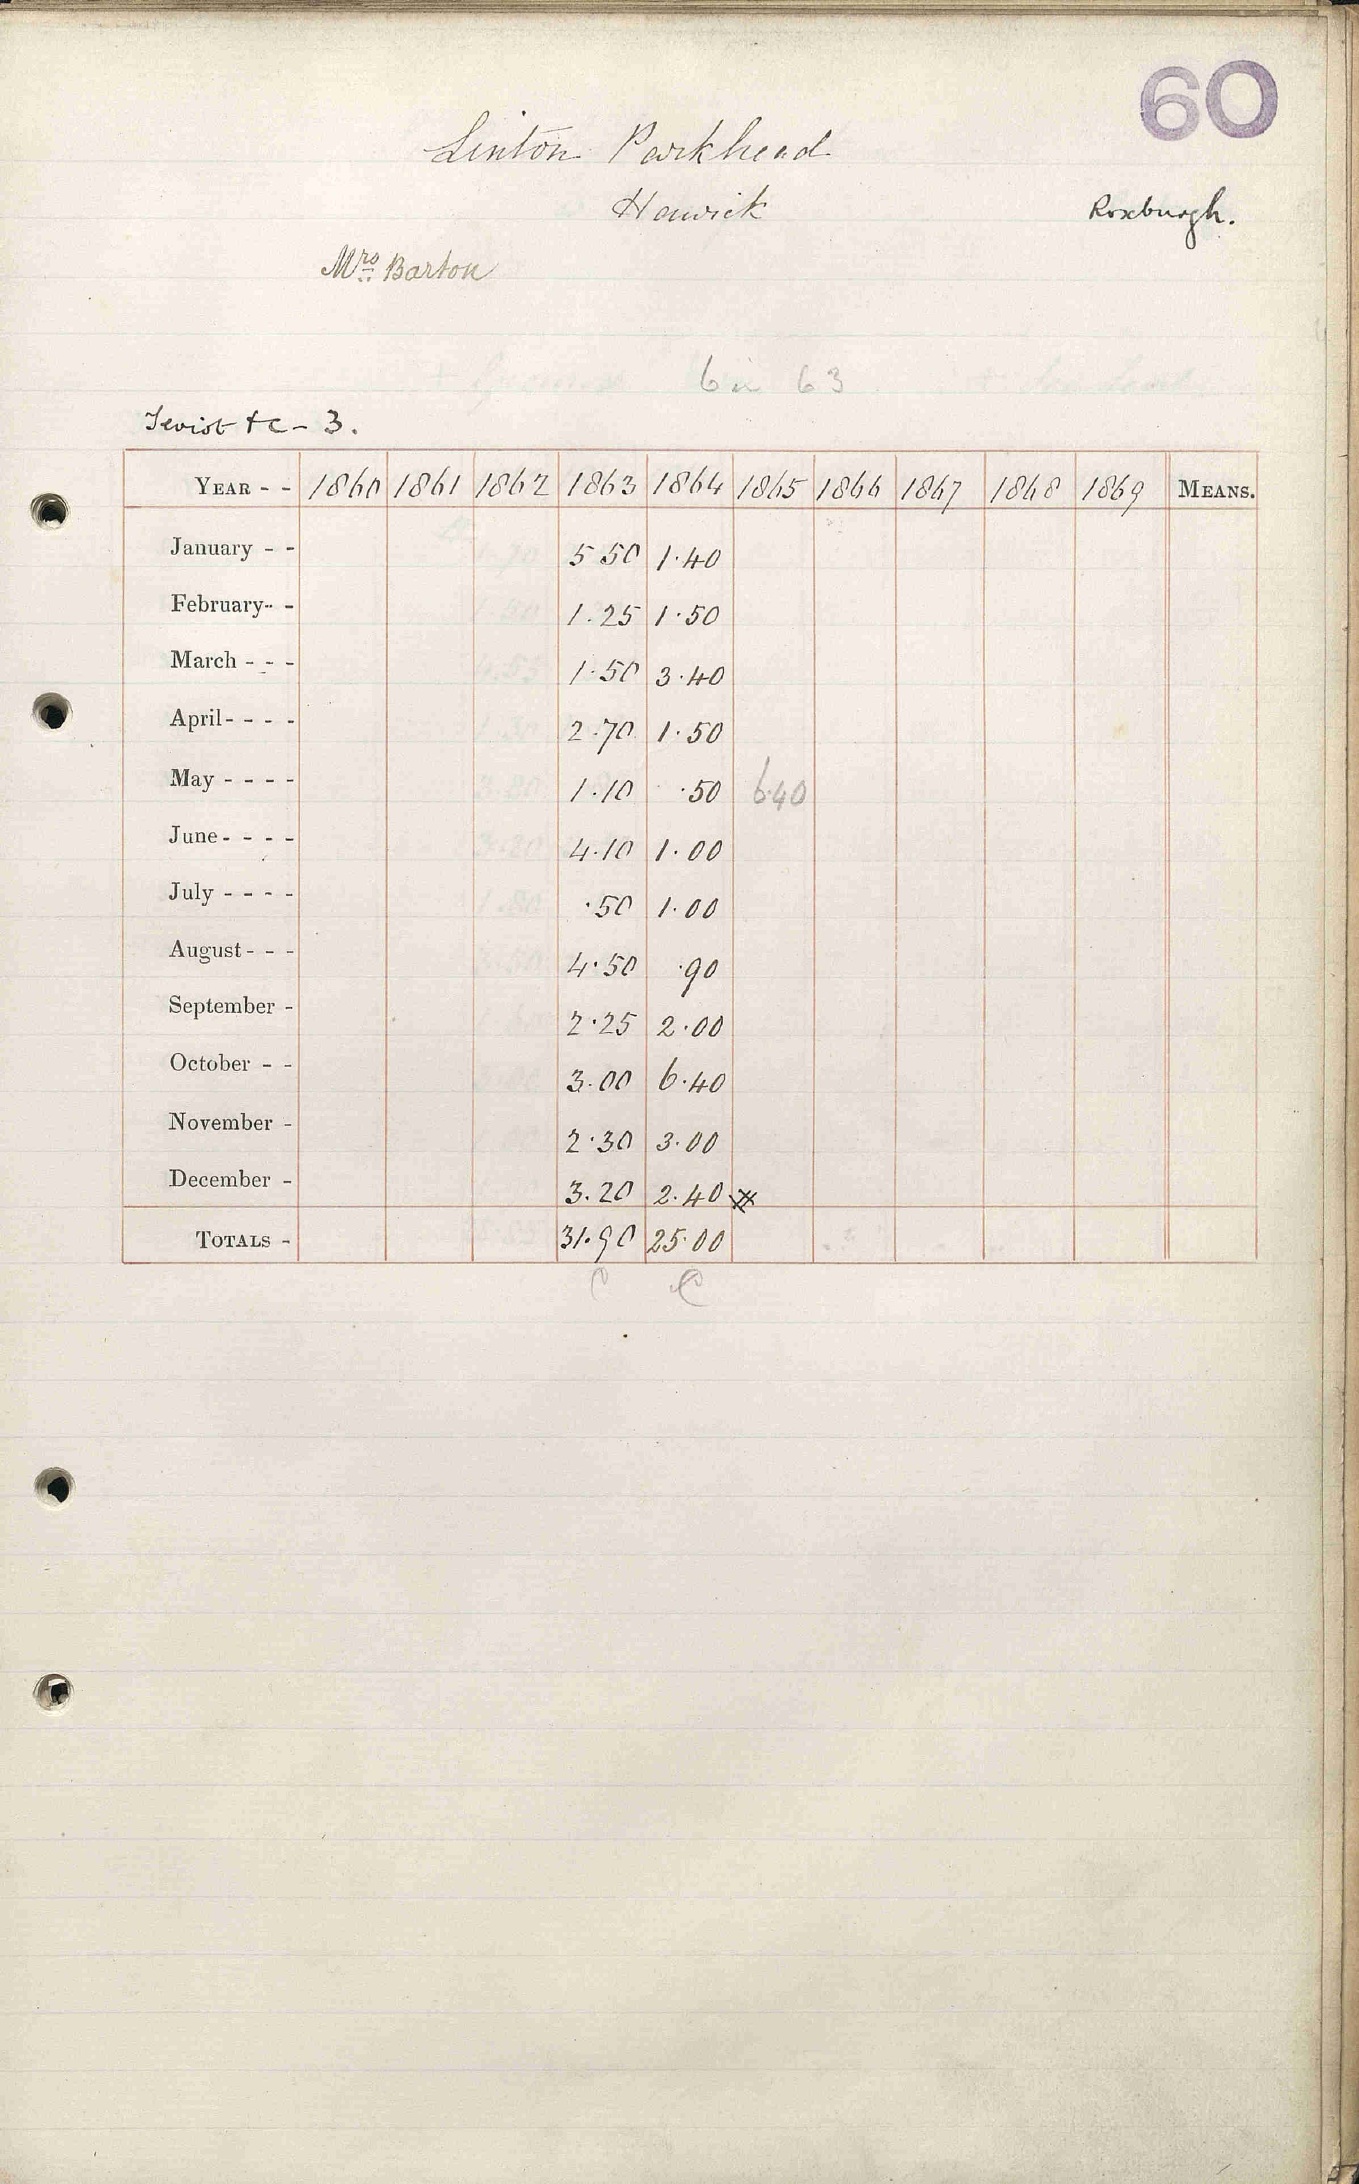 60
Linton Parkhead
Hawick
Roxburgh.
Mrs Barton
6 in 63
Teviot &c - 3.
YEAR - - 1860 1861 1862 1863 1864 1865 1866 1867 1868 1869 MEANS.
January - - 5.50 1.40
February - - 1.25 1.50
March - - - 1.50 3.40
April - - - - 2.70 1.50
May - - - - 1.10 .50 6.40
June - - - - 4.10 1.00
July - - - - .50 1.00
August - - - 4.50 .90
September - 2.25 2.00
October - - 3.00 6.40
November - 2.30 3.00
December - 3.20 2.40
TOTALS - 31.90 25.00
C C